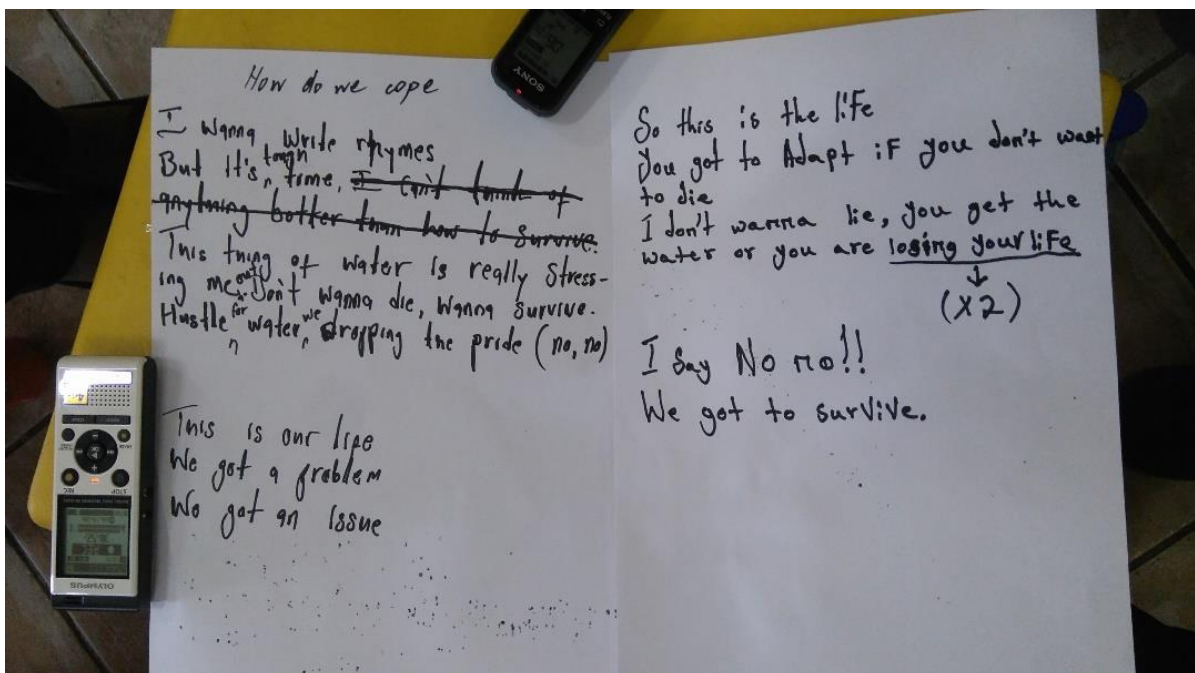 How do we cope
I wanna write rhymes
But it's tough time, I can't think of
anything better than how to survive.
This thing of water is really stress-
ing me out. Don't wanna die, wanna survive.
Hustle for water, we dropping the pride (no, no)
This is our life
We got a problem
We got an issue
So this is the life
You got to Adapt if you don't want
to die
I don't wanna lie, you get the
water or you are losing your life
(x2)
I say No no!!
We got to survive.
SONY
OLYMPUS
REC
STOP